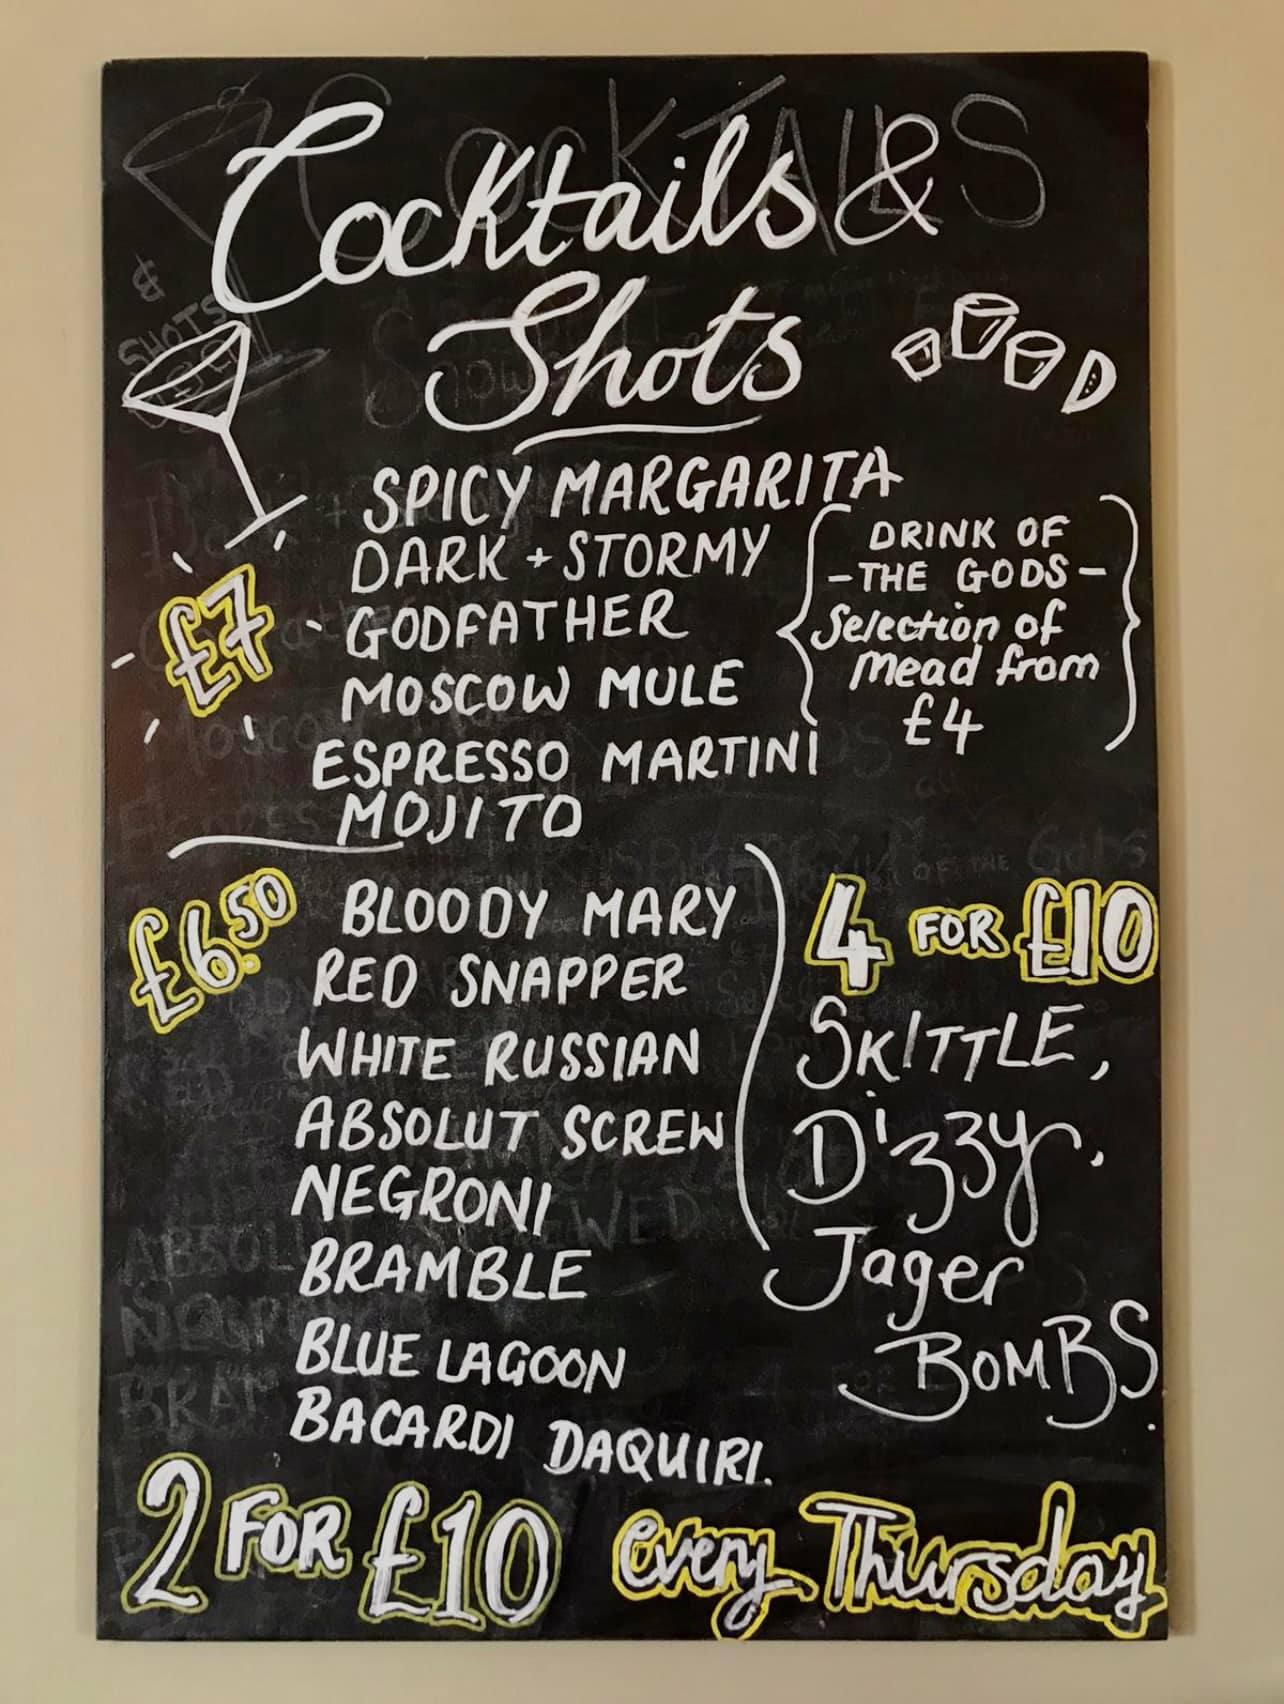 Cocktails &
Shots
£7
SPICY MARGARITA
DARK + STORMY
GODFATHER
MOSCOW MULE
ESPRESSO MARTINI
MOJITO
DRINK OF
- THE GODS -
Selection of
Mead from
£4
£6.50
BLOODY MARY
RED SNAPPER
WHITE RUSSIAN
ABSOLUT SCREW
NEGRONI
BRAMBLE
BLUE LAGOON
BACARDI DAQUIRI.
4 FOR £10
SKITTLE,
Dizzy,
Jager
BOMBS.
2 FOR £10 every Thursday